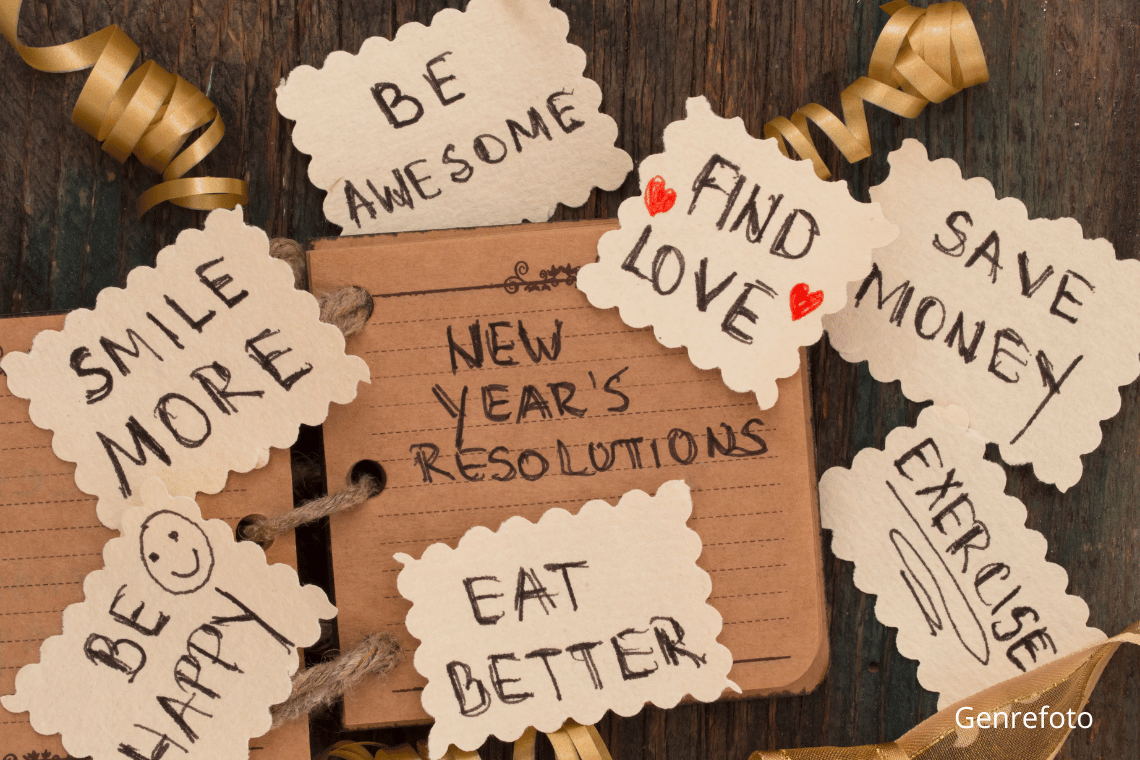 BE
AWESOME
FIND
LOVE
SAVE
MONEY
SMILE
MORE
NEW
YEAR'S
RESOLUTIONS
EXERCISE
BE
HAPPY
EAT
BETTER
Genrefoto